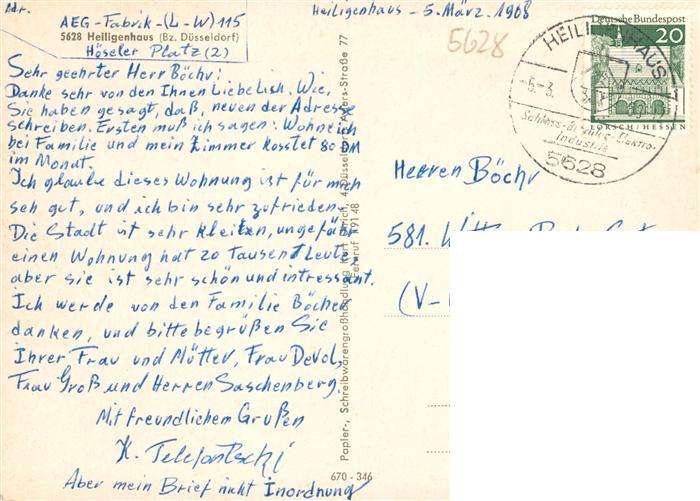 Adr.
AEG-Fabrik-(L-W) 115
5628 Heiligenhaus (Bz. Düsseldorf)
Höseler Platz (2)
Heiligenhaus - 5. März. 1968
Sehr geehrter Herr Böchv!
Danke sehr von den Ihnen Liebelish. Wie,
Sie haben gesagt, daß, neuen der Adresse
schreiben. Ersten muß ich sagen: Wohne ich
bei Familie und mein Zimmer kosstet 80 DM
im Monat.
Ich glaube dieses Wohnung ist für mich
seh gut, und ich bin sehr zufrieden.
Die Stadt ist sehr klein, ungefähr
einen Wohnung hat 20 tausend Leute,
aber sie ist sehr schön und intressant.
Ich werde von den Familie Böcher
danken, und bitte begrüßen Sie
Ihrer Frau und Mütter, Frau Devol,
Frau Groß und Herren Saschenberg.
Mit freundlichem Grußen
Aber mein Brief nicht Inordnung
Papier-, Schreibwarengroßhandlung Kurt 4 Düsseldorf, Straße 77
Fernruf 191 48
670 - 346
5628
HEILIGENHAUS
-6.-3.
Schloss- Elektro-
Industrie
5628
Deutsche Bundespost
20
LORSCH/HESSEN
Herren Böchv
581.
(V-